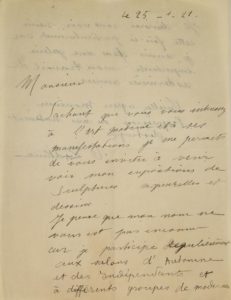 le 25 - 1 - 21.
Monsieur
sachant que vous vous intéressez
à l'art moderne et à ses
manifestations je me permets
de vous inviter à venir
voir mon exposition de
sculptures aquarelles et
dessins
Je pense que mon nom ne
vous est pas inconnu
car je participe régulièrement
aux salons d'Automne
et des Indépendants et
à différents groupes de